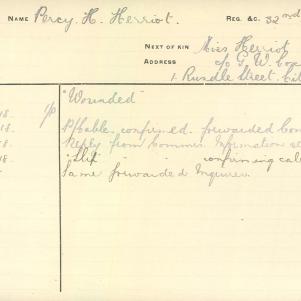 NAME Percy. H. Herriot. REG. &C. 32nd
NEXT OF KIN Miss Herriot
ADDRESS c/o G. W. Cox
1. Rundle Street. Cit
"Wounded"
18. P/Cable confirmed forwarded
8. Reply from Commis. Information
18. Slip confirming cab
Same forwarded Enquirer.